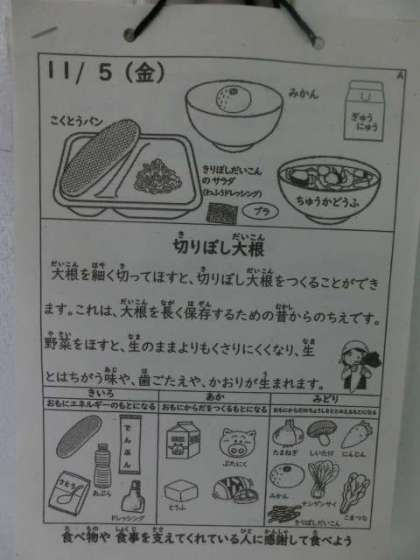 11/5(金)
A
みかん
ぎゅうにゅう
こくとうパン
きりぼしだいこん
のサラダ
(わふうドレッシング)
プラ
ちゅうかどうふ
切りぼし大根
大根を細く切ってほすと、切りぼし大根をつくることができ
ます。これは、大根を長く保存するための昔からのちえです。
野菜をほすと、生のままよりもくさりにくくなり、生
とはちがう味や、歯ごたえや、かおりが生まれます。
きいろ
おもにエネルギーのもとになる
でんぷん
さとう
あぶら
ドレッシング
あか
おもにからだをつくるもとになる
ぶたにく
とうふ
みどり
おもにからだのちょうしをととのえるもとになる
たまねぎ
しいたけ
にんじん
みかん
チンゲンサイ
こまつな
きりぼしだいこん
食べ物や食事を支えてくれている人に感謝して食べよう